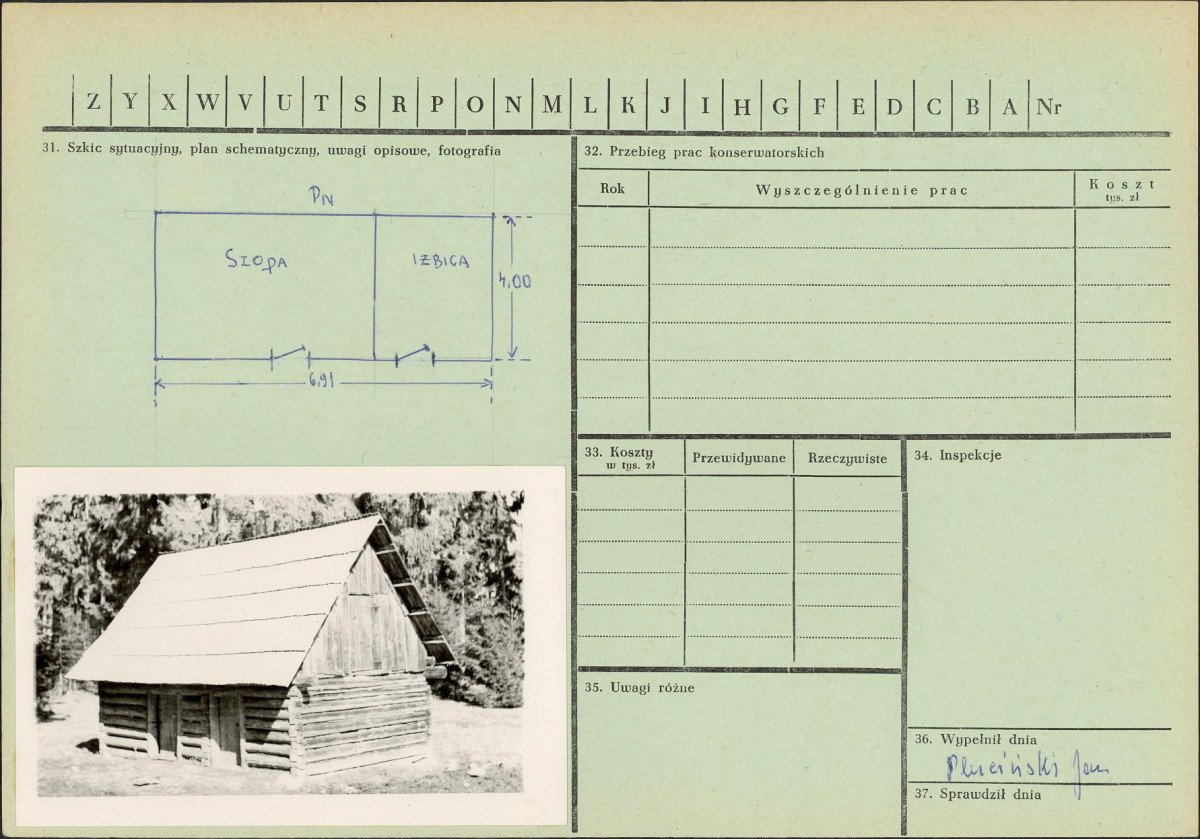 Z Y X W V U T S R P O N M L K J I H G F E D C B A Nr
31. Szkic sytuacyjny, plan schematyczny, uwagi opisowe, fotografia
PN
SZOPA
IZBICA
4,00
6,91
32. Przebieg prac konserwatorskich
Rok
Wyszczególnienie prac
Koszt
tys. zł
33. Koszty
w tys. zł
Przewidywane
Rzeczywiste
34. Inspekcje
35. Uwagi różne
36. Wypełnił dnia
Pluciński Jan
37. Sprawdził dnia